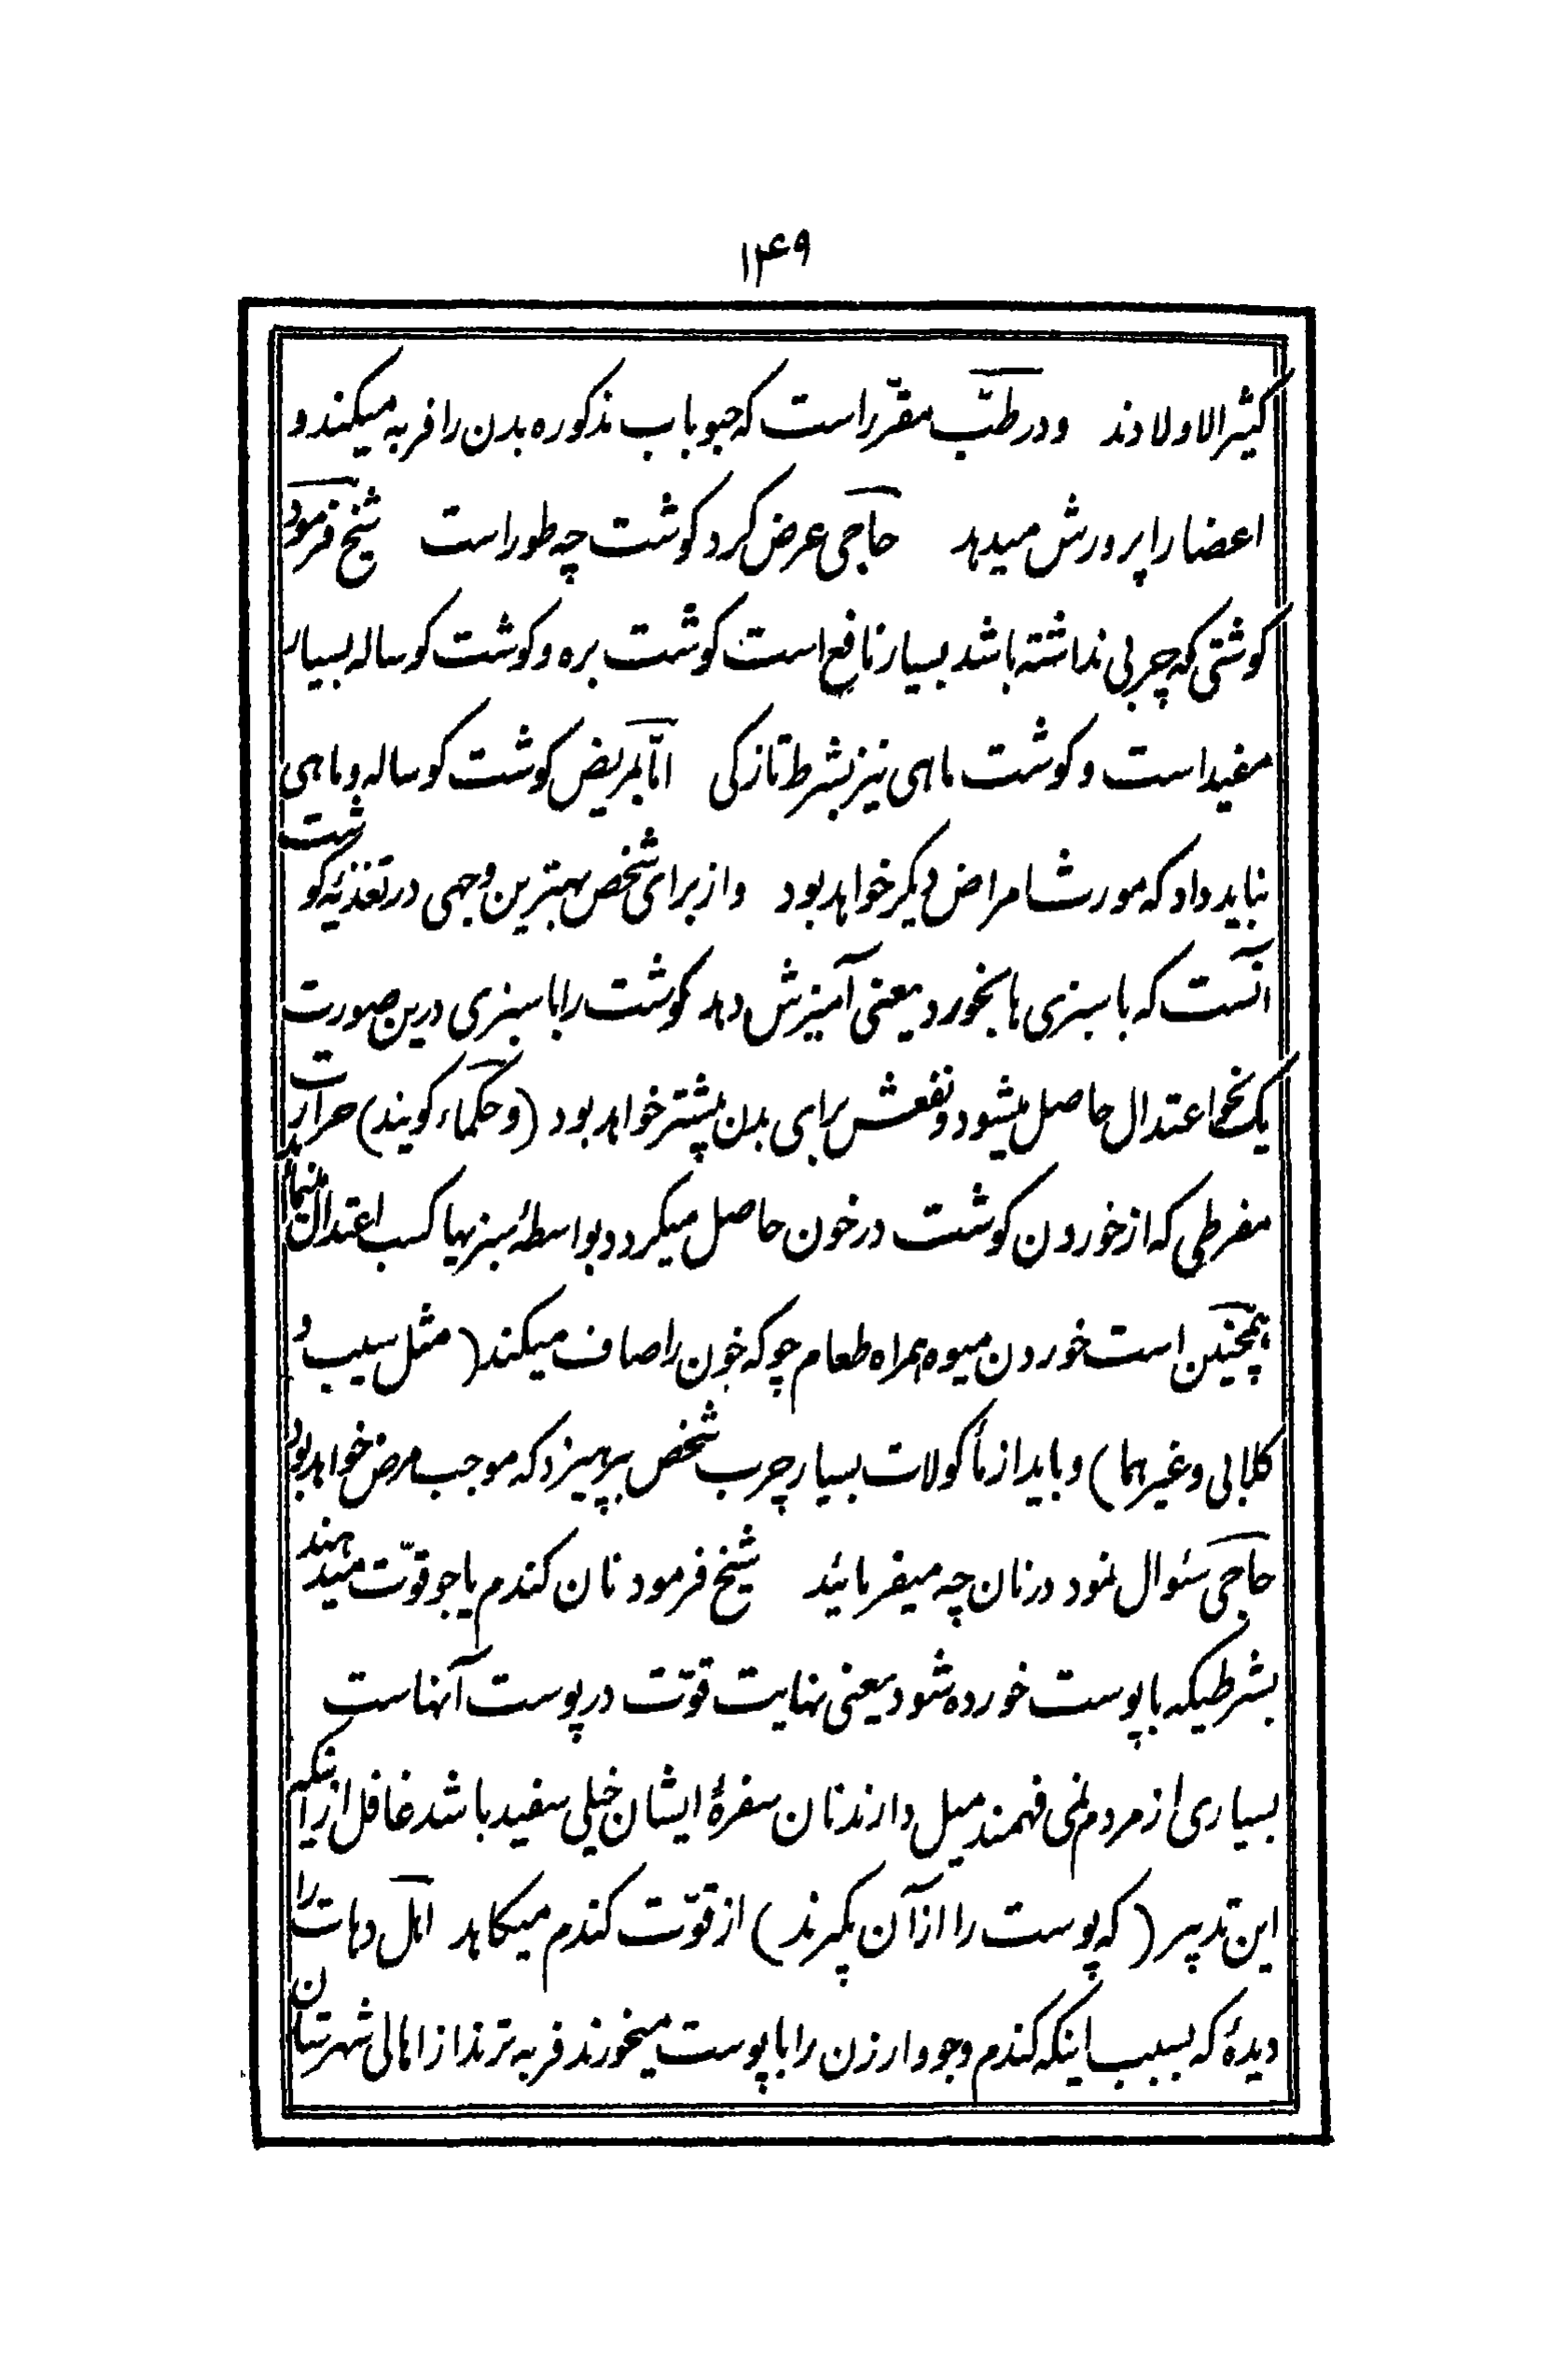 ۱۴۹
کثیر الاولادند و در طبّ مقرّر است که حبوبات مذکوره بدن را فربه میکند و
اعضا را پرورش میدهد حاجی عرض کرد کوشت چه طور است شیخ فرمود
کوشتی که چربی نداشته باشد بسیار نافع است کوشت بره و کوشت کوساله بسیار
مفید است و کوشت ماهی نیز بشرط تازکی امّا بمریض کوشت کوساله و ماهی
نباید داد که مورث امراض دیکر خواهد بود و از برای شخص بهترین وجهی در تغذیهٔ کوشت
آنست که با سبزی ها بخورد یعنی آمیزش دهد کوشت را با سبزی درین صورت
یک نحو اعتدال حاصل میشود و نفعش برای بدن بیشتر خواهد بود (و حکماء کویند) حرارت
مفرطی که از خوردن کوشت در خون حاصل میکردد بواسطهٔ سبزیها کسب اعتدال مینماید
همچنین است خوردن میوه همراه طعام چو که خون را صاف میکند (مثل سیب و
کلابی و غیرهما) و باید از مأکولات بسیار چرب شخص بپرهیزد که موجب مرض خواهد بود
حاجی سئوال نمود در نان چه میفرمائید شیخ فرمود نان کندم یا جو قوّت میدهند
بشرطیکه با پوست خورده شود یعنی نهایت قوّت در پوست آنهاست
بسیاری از مردم نمی فهمند میل دارند نان سفرهٔ ایشان خیلی سفید باشد غافل از اینکه
این تدبیر (که پوست را از آن بکیرند) از قوّت کندم میکاهد اهل دهات را
دیدهٔ که بسبب اینکه کندم و جو و ارزن را با پوست میخورند فربه ترند از اهالی شهرستان